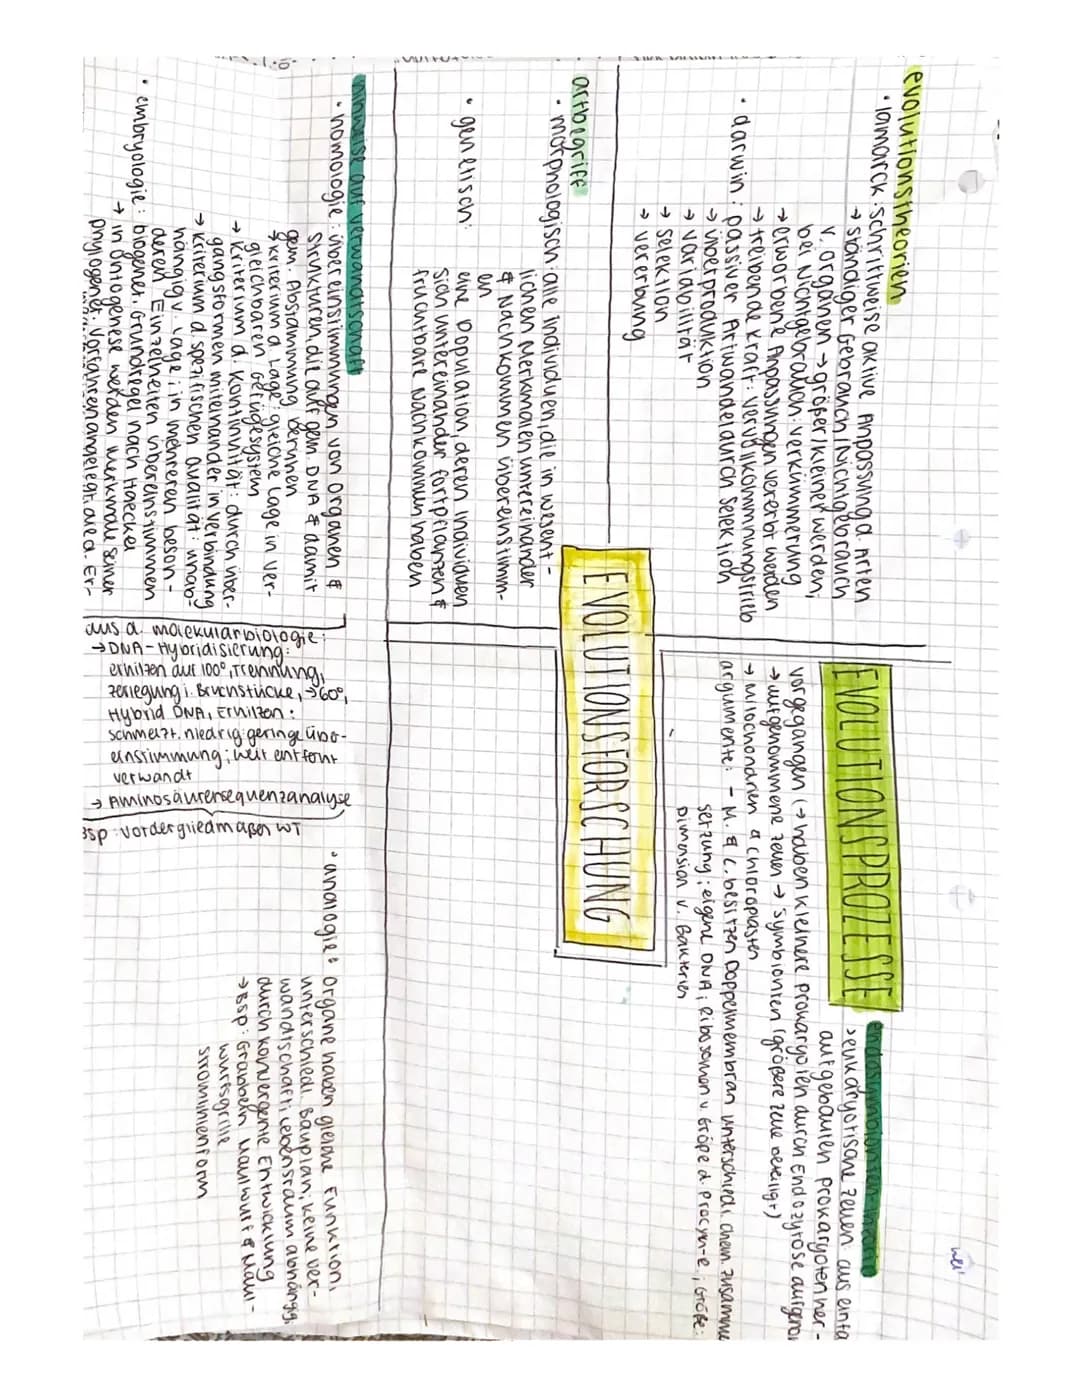 evolutionstheorien
• lamarck: schrittweise aktive Anpassung d. Arten
→ ständiger Gebrauch / Nichtgebrauch
v. organen → größer / kleiner werden,
bei Nichtgebrauch: verkümmerung
→ erworbene Anpassungen vererbt werden
→ treibende kraft: vervollkommnungstrieb
• darwin: passiver Artwandel durch Selektion
→ überproduktion
→ variabilität
→ selektion
→ vererbung
artbegriff
• morphologisch: alle individuen, die in wesent-
lichen Merkmalen untereinander
& Nachkommen übereinstimm-
en
• genetisch:
eine Population, deren individuen
sich untereinander fortpflanzen &
fruchtbare Nachkommen haben
hinweise auf verwandtschaft
• homologie: übereinstimmungen von organen &
Strukturen, die auf gem. DNA & damit
gem. Abstammung beruhen
→ kriterium d. Lage: gleiche Lage in ver-
gleichbaren Gefügesystem
→ kriterium d. Kontinuität: durch über-
gangsformen miteinander in verbindung
→ kriterium d. spezifischen Qualität: unab-
hängig v. Lage; in mehreren beson-
deren Einzelheiten übereinstimmen
• embryologie: biogenet. Grundregel nach Haeckel
→ in Ontogenese werden Merkmale seiner
phylogenet. vorfahren angelegt, die d. Er-
EVOLUTIONSFORSCHUNG
EVOLUTIONSPROZESSE
endosymbionten-theorie
→ eukaryotische zellen: aus einfa
aufgebauten prokaryoten her-
vorgegangen (→ haben kleinere prokaryoten durch Endozytose aufgeno
→ aufgenommene zellen → symbionten (größere zelle beteiligt)
→ Mitochondrien & chloroplasten
argumente: - M. & C. besitzen Doppelmembran unterschiedl. chem. zusamme
setzung; eigene DNA; Ribosomen v. Größe d. Procyote; Größe:
Dimension v. Bakterien
aus d. molekularbiologie:
→ DNA-Hybridisierung:
erhitzen auf 100°, Trennung,
zerlegung i. Bruchstücke, → 60°,
Hybrid DNA, Erhitzen:
schmelzt. niedrig: geringe über-
einstimmung; weit entfernt
verwandt
→ Aminosäurensequenzanalyse
Bsp: vordergliedmaßen WT
• analogie: Organe haben gleiche Funktion,
unterschiedl. Bauplan; keine ver-
wandtschaft; lebensraum abhängig,
durch konvergente Entwicklung
→ Bsp: Grabbein Maulwurf & Maul-
wurfsgrille
stromlinienform